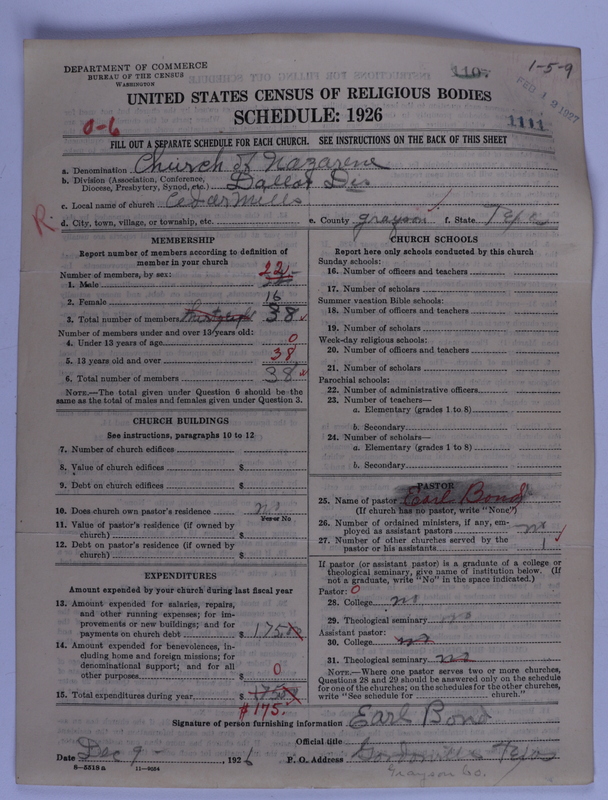 DEPARTMENT OF COMMERCE
BUREAU OF THE CENSUS
WASHINGTON
1107
1-5-9
FEB 12 1927
UNITED STATES CENSUS OF RELIGIOUS BODIES
SCHEDULE: 1926
1111
0-6
FILL OUT A SEPARATE SCHEDULE FOR EACH CHURCH. SEE INSTRUCTIONS ON THE BACK OF THIS SHEET
a. Denomination Church of Nazarene
b. Division (Association, Conference, Diocese, Presbytery, Synod, etc.) Dallas Dis
c. Local name of church Cedar Mills
R.
d. City, town, village, or township, etc.
e. County Grayson
f. State Texas
MEMBERSHIP
Report number of members according to definition of
member in your church
Number of members, by sex:
1. Male 22
2. Female 16
3. Total number of members 38
Number of members under and over 13 years old:
4. Under 13 years of age 0
5. 13 years old and over 38
6. Total number of members 38
NOTE.—The total given under Question 6 should be
same as the total of males and females given under Question 3.
CHURCH BUILDINGS
See instructions, paragraphs 10 to 12
7. Number of church edifices
8. Value of church edifices $
9. Debt on church edifices $
10. Does church own pastor's residence no
Yes or No
11. Value of pastor's residence (if owned by
church) $
12. Debt on pastor's residence (if owned by
church) $
EXPENDITURES
Amount expended by your church during last fiscal year
13. Amount expended for salaries, repairs,
and other running expenses; for im-
provements or new buildings; and for
payments on church debt $ 175
14. Amount expended for benevolences, in-
cluding home and foreign missions; for
denominational support; and for all
other purposes $ 0
15. Total expenditures during year $
$175.
CHURCH SCHOOLS
Report here only schools conducted by this church
Sunday schools:
16. Number of officers and teachers
17. Number of scholars
Summer vacation Bible schools:
18. Number of officers and teachers
19. Number of scholars
Week-day religious schools:
20. Number of officers and teachers
21. Number of scholars
Parochial schools:
22. Number of administrative officers
23. Number of teachers—
a. Elementary (grades 1 to 8)
b. Secondary
24. Number of scholars—
a. Elementary (grades 1 to 8)
b. Secondary
PASTOR
25. Name of pastor Earl Bond
(If church has no pastor, write "None")
26. Number of ordained ministers, if any, em-
ployed as assistant pastors no
27. Number of other churches served by the
pastor or his assistants 1
If pastor (or assistant pastor) is a graduate of a college or
theological seminary, give name of institution below. (If
not a graduate, write "No" in the space indicated.)
Pastor: 0
28. College no
29. Theological seminary no
Assistant pastor:
30. College no
31. Theological seminary no
NOTE.—Where one pastor serves two or more churches,
Questions 28 and 29 should be answered only on the schedule
for one of the churches; on the schedules for the other churches,
write "See schedule for church."
Signature of person furnishing information Earl Bond
Official title
Date Dec 9 - , 1926
P. O. Address Gordonville Texas
8—5518a 11—9024
Grayson Co.